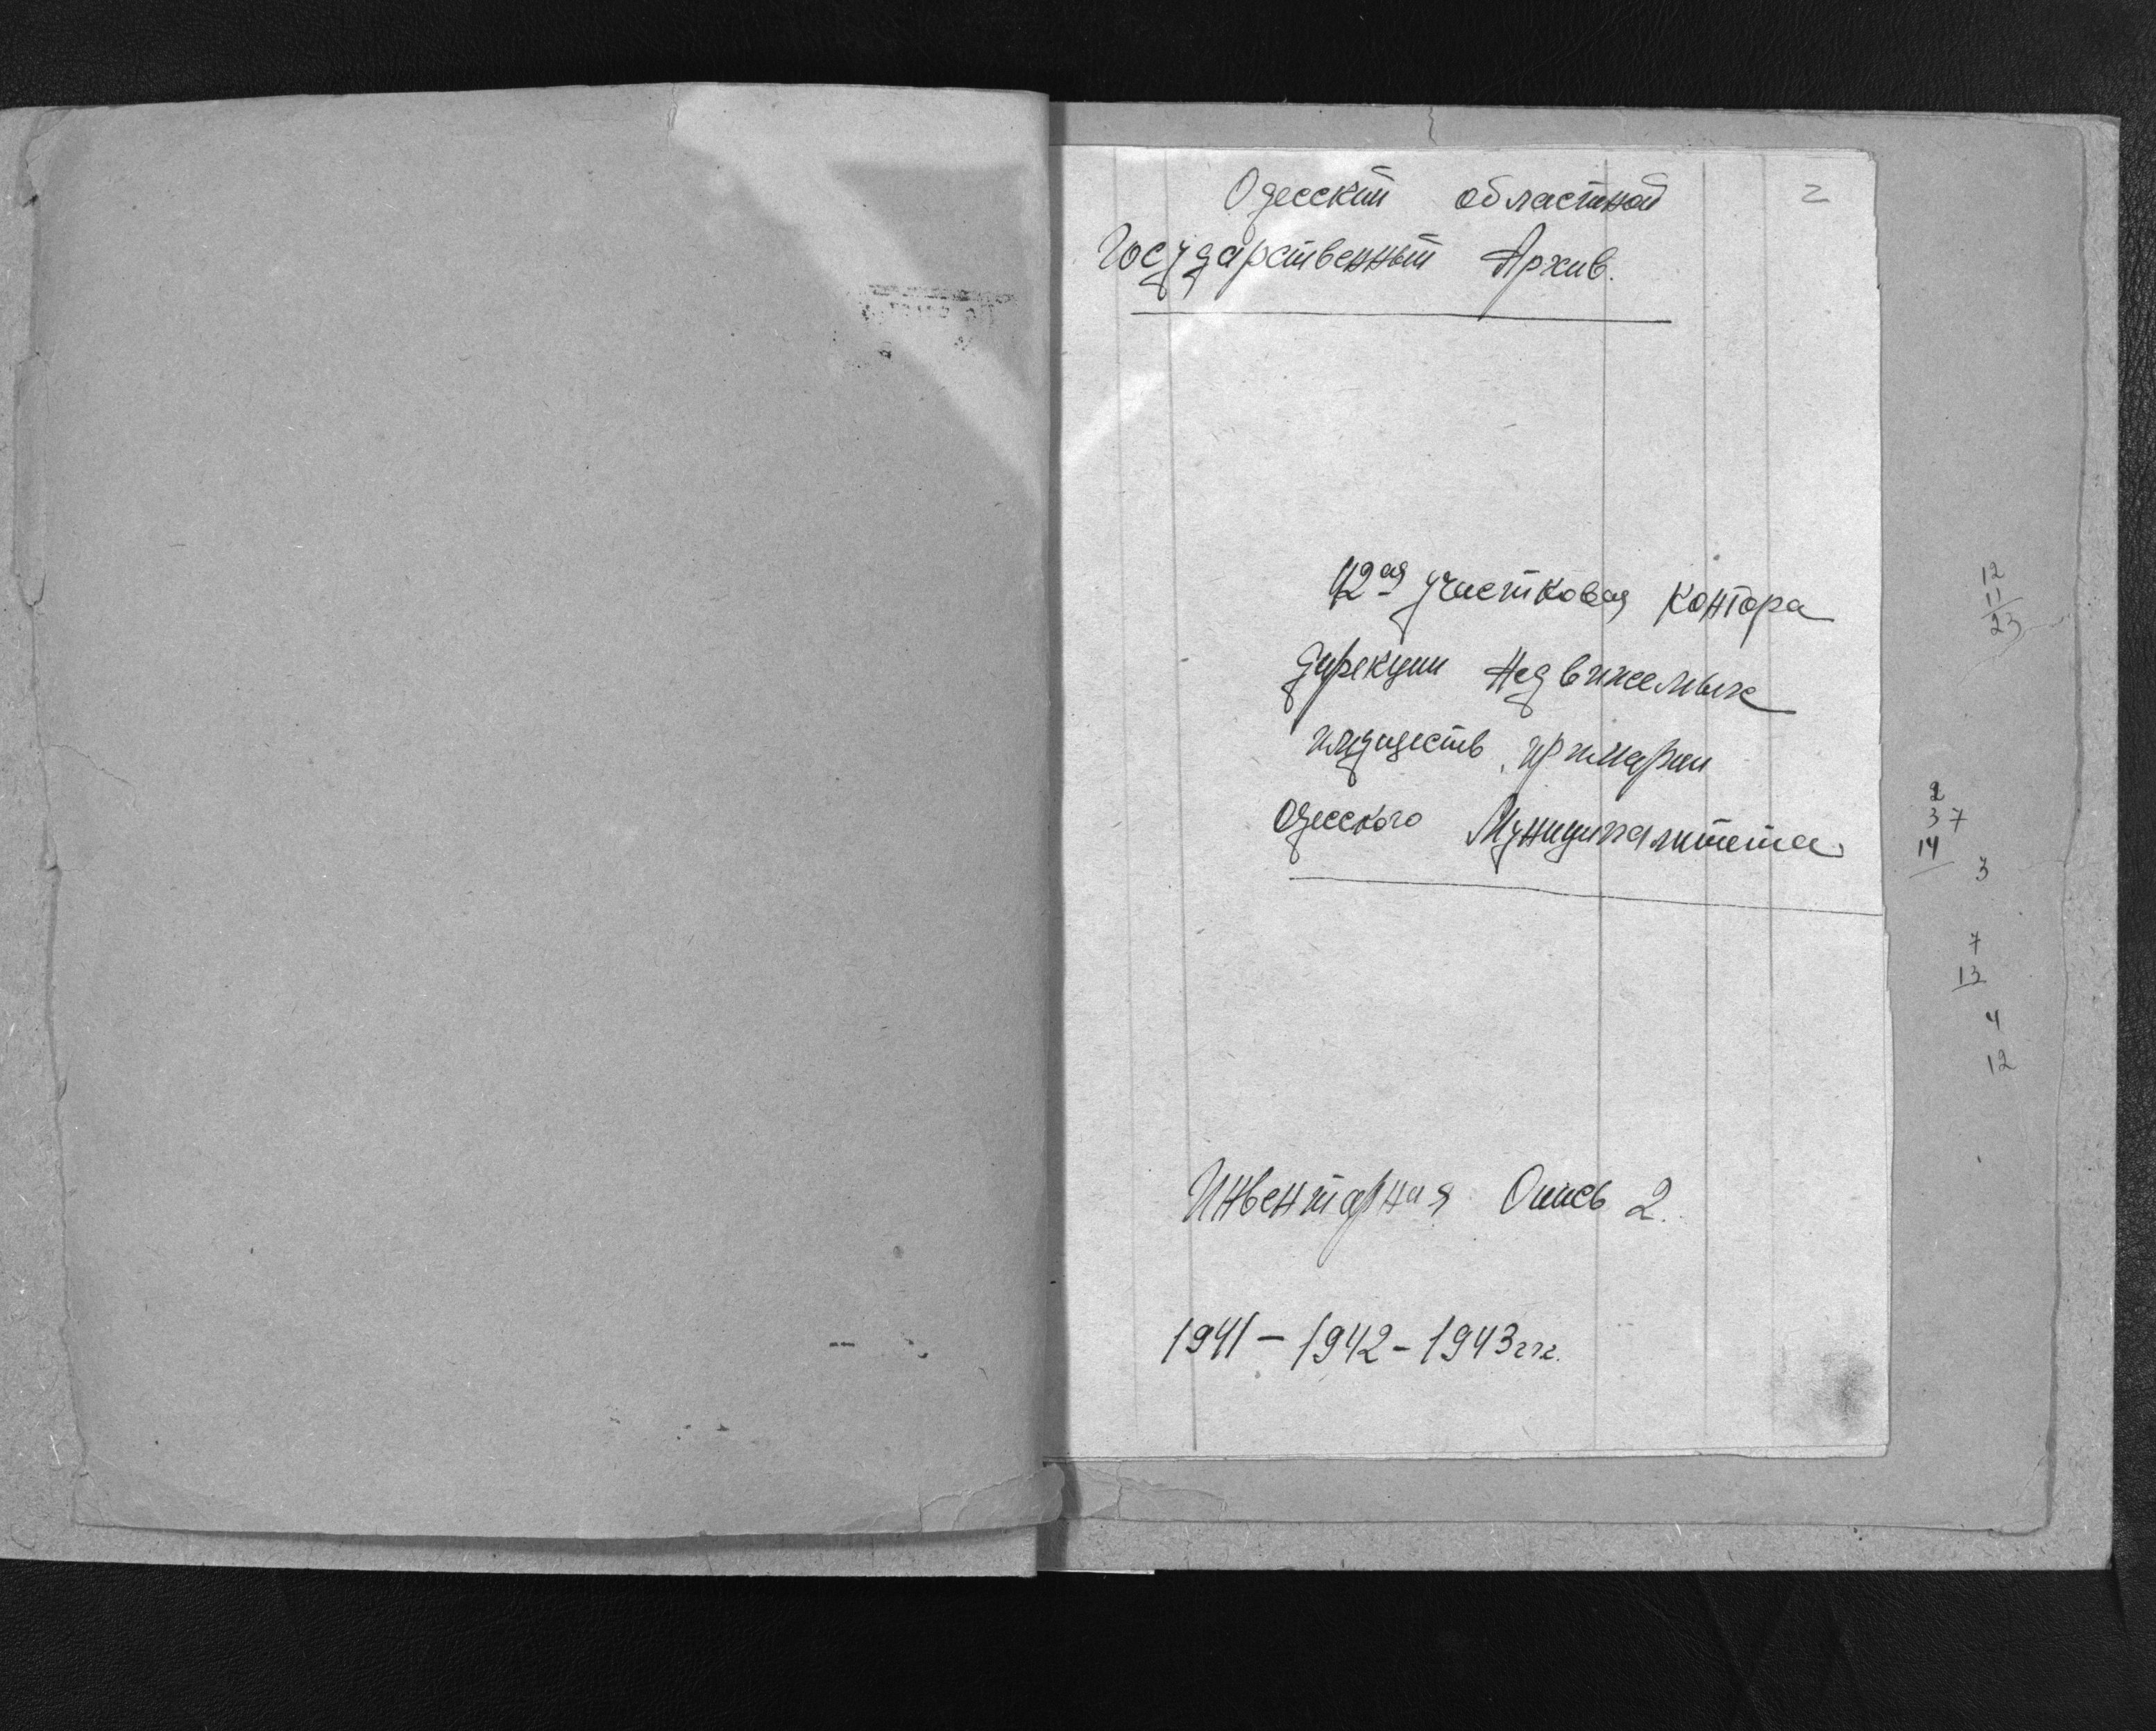 2
Одесский областной
Государственный Архив.
12ая участковая контора
дирекции недвижемых
имуществ, примарии
Одесского Муниципалитета.
Инвентарная Опись 2.
1941 – 1942 – 1943 ггг.
12
11
23
2
37
14
3
7
13
4
12